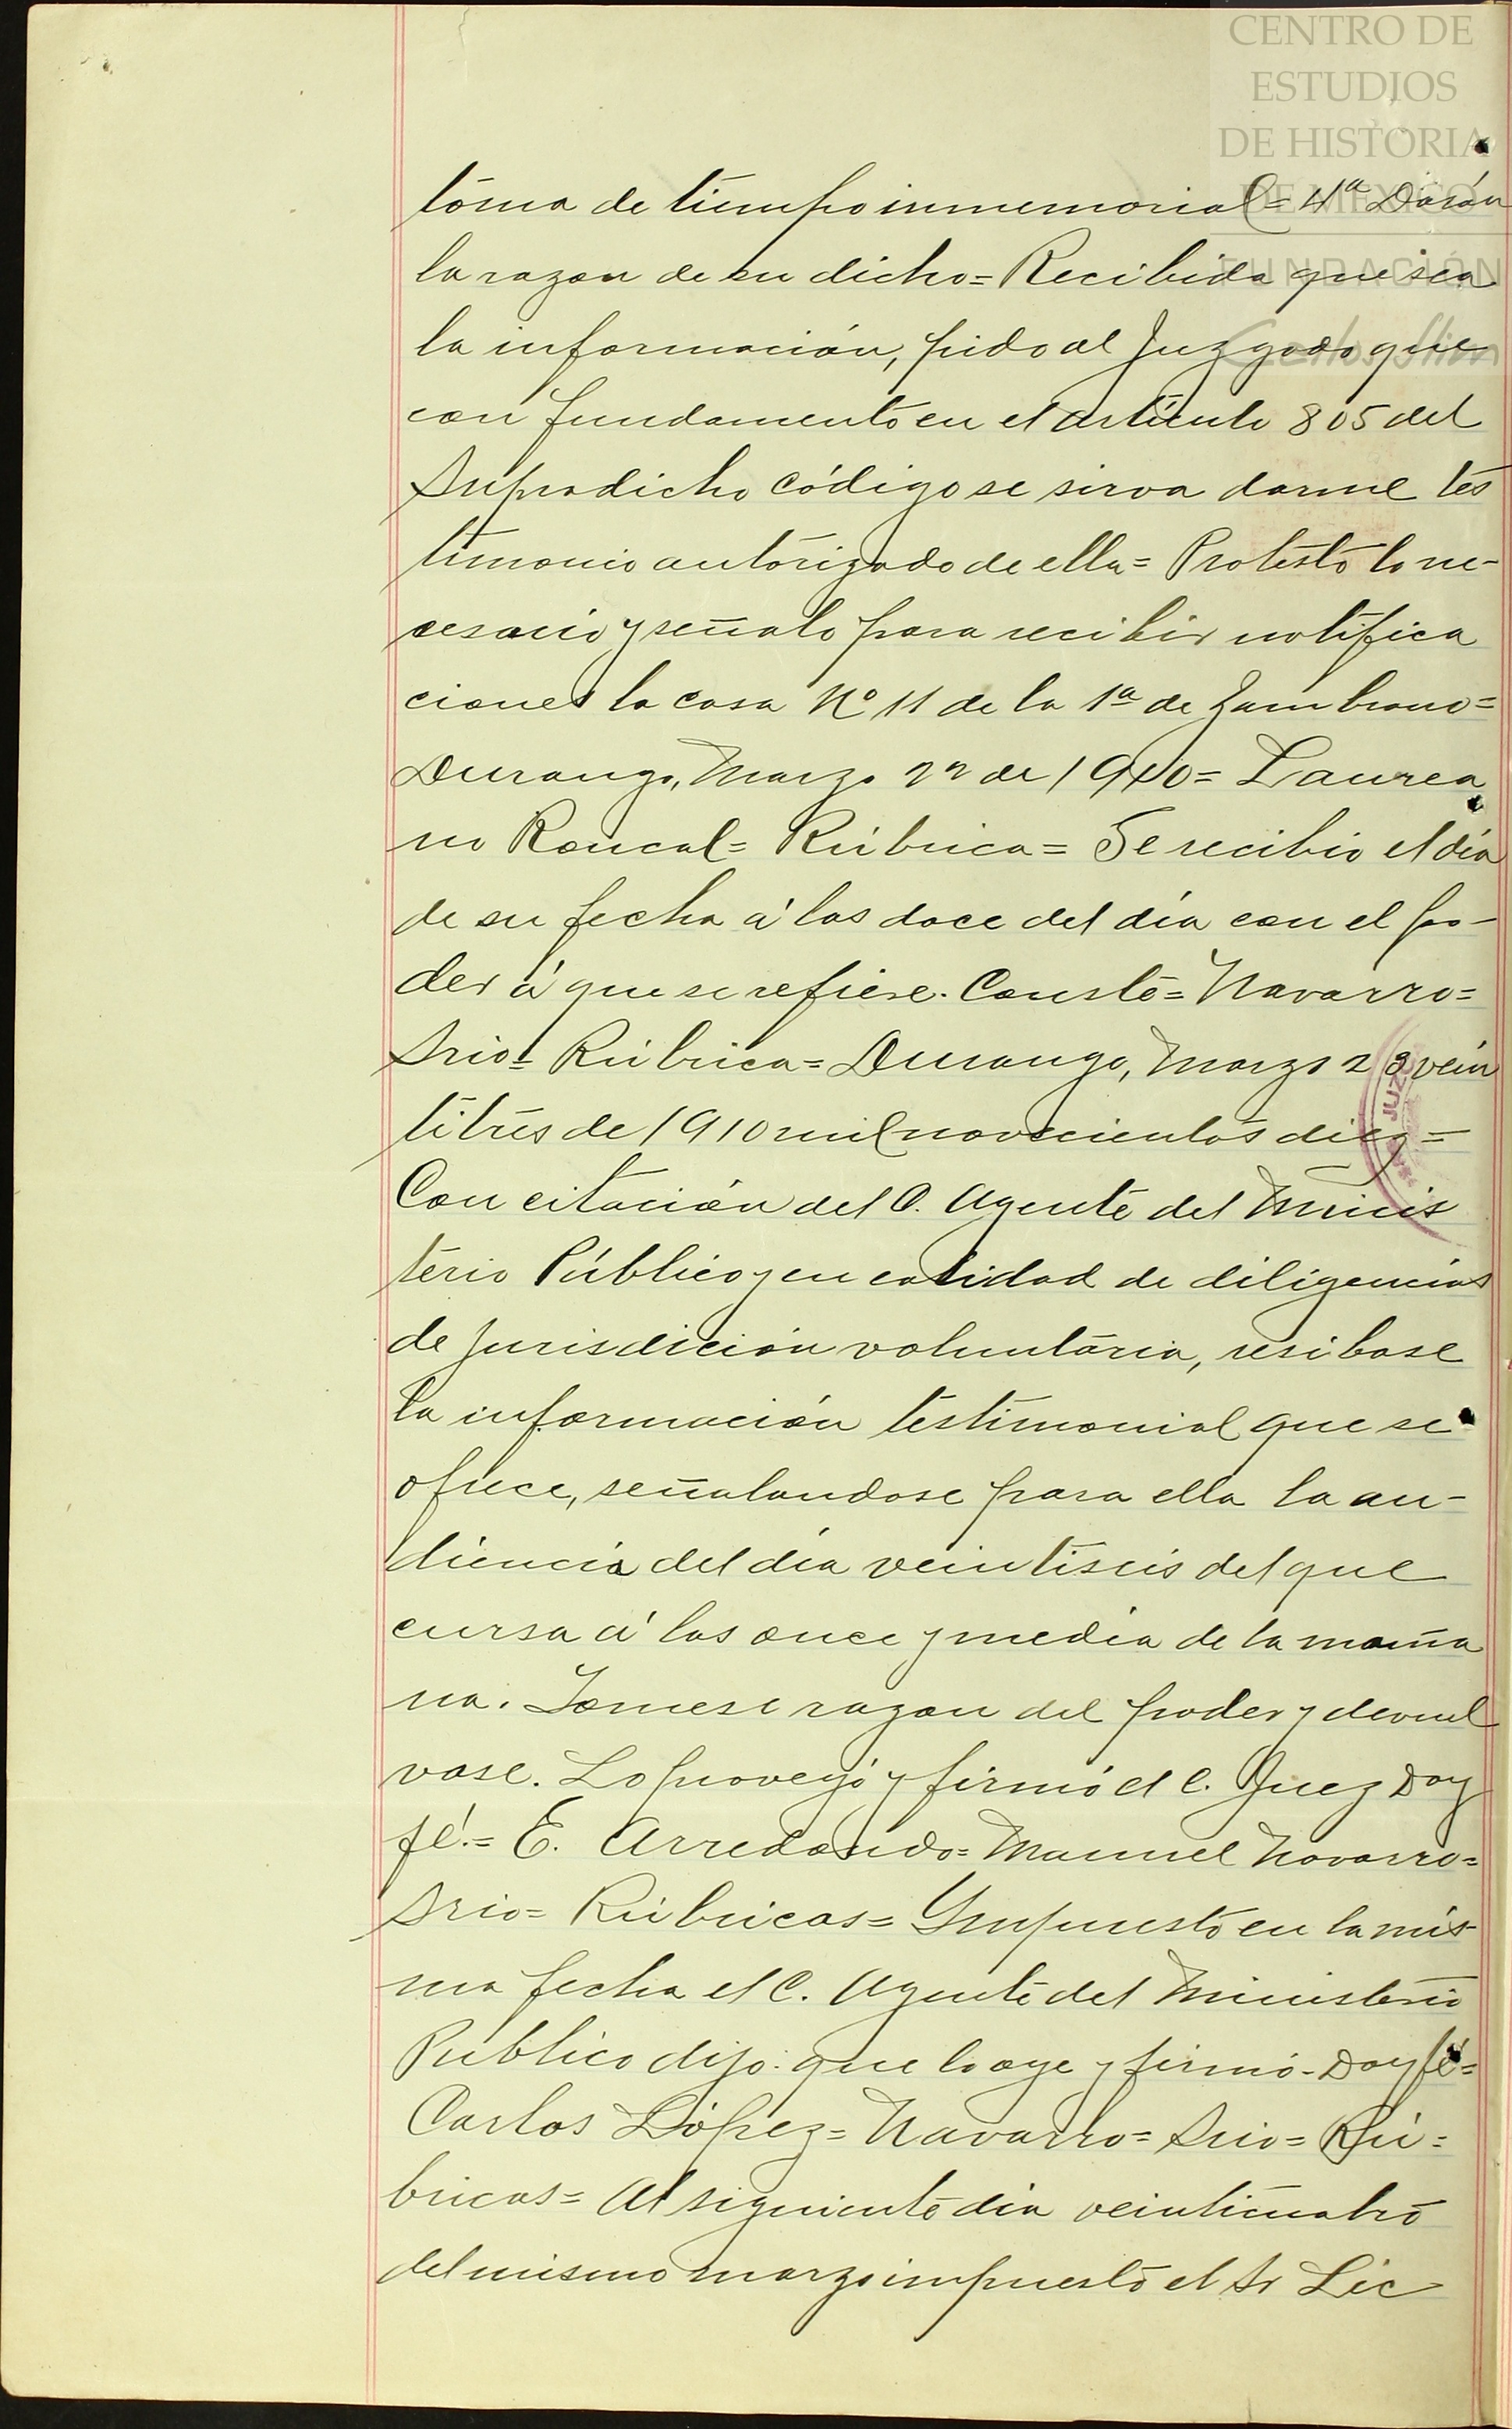 CENTRO DE
ESTUDIOS
DE HISTORIA
DE MEXICO
FUNDACIÓN
Carlos Slim
toma de tiempo inmemorial= 4ª Darán
la razon de su dicho= Recibida que sea
la información, pido al Juzgado que
con fundamento en el artículo 805 del
Supradicho código se sirva darme tes
timonio autorizado de ella= Protesto lo ne-
cesario y señalo para recibir notifica
ciones la casa Nº 11 de la 1ª de Zambrano=
Durango, Marzo 22 de 1910= Laurea
no Roncal= Rúbrica= Se recibio el día
de su fecha á las doce del día con el po-
der á que se refiere. Consté= Navarro=
Srio= Rúbrica= Durango, Marzo 23 vein
titrés de 1910 mil novecientos diez=
Con citación del C. Agente del Minis
terio Público y en calidad de diligencias
de jurisdicción voluntaria, resibase
la información testimonial que se
ofrece, señalandose para ella la au-
diencia del día veintiseis del que
cursa á las once y media de la maña
na. Tomese razon del poder y devuel
vase. Lo proveyó y firmó el C. Juez Doy
fé.= E. Arredondo= Manuel Navarro=
Srio= Rúbricas= Ympuesto en la mis-
ma fecha el C. Agente del Ministerio
Publico dijo: que lo oye y firmó- Doy fé=
Carlos López= Navarro= Srio= Rú=
bricas= Al siguiente día veinticuatro
del mismo marzo impuesto el Sr Lic
JUZ